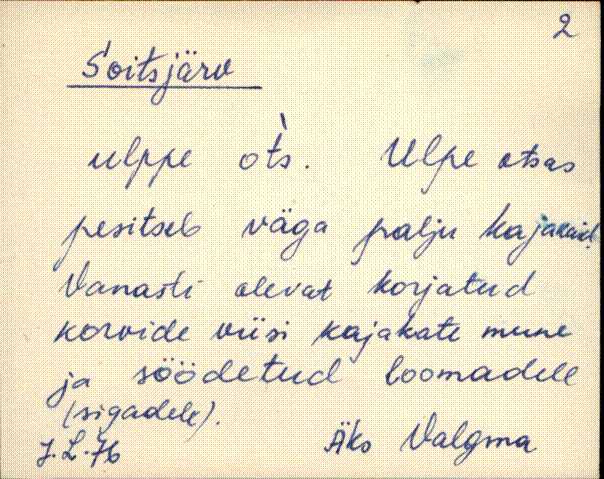 2
Soitsjärv
ulppe ot̀s. Ulpe otsas
pesitseb väga palju kajakaid.
Vanasti olevat korjatud
korvide viisi kajakate mune
ja söödetud loomadele
(sigadele).
J.L.76 Äks Valgma